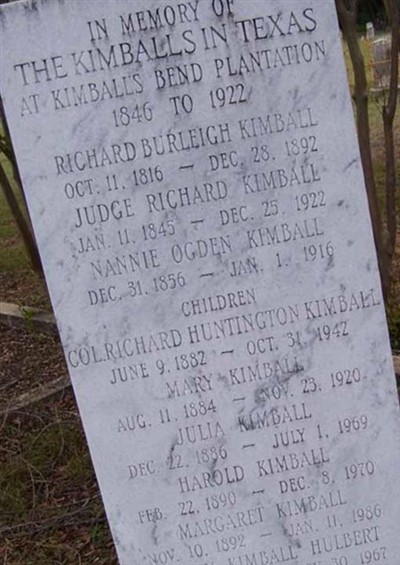 IN MEMORY OF
THE KIMBALLS IN TEXAS
AT KIMBALLS BEND PLANTATION
1846 TO 1922
RICHARD BURLEIGH KIMBALL
OCT. 11, 1816 — DEC. 28, 1892
JUDGE RICHARD KIMBALL
JAN. 11, 1845 — DEC. 25, 1922
NANNIE OGDEN KIMBALL
DEC. 31, 1856 — JAN. 1, 1916
CHILDREN
COL. RICHARD HUNTINGTON KIMBALL
JUNE 9, 1882 — OCT. 31, 1942
MARY KIMBALL
AUG. 11, 1884 — NOV. 23, 1920
JULIA KIMBALL
DEC. 22, 1886 — JULY 1, 1969
HAROLD KIMBALL
FEB. 22, 1890 — DEC. 8, 1970
MARGARET KIMBALL
NOV. 10, 1892 — JAN. 11, 1986
KIMBALL HULBERT
30, 1967